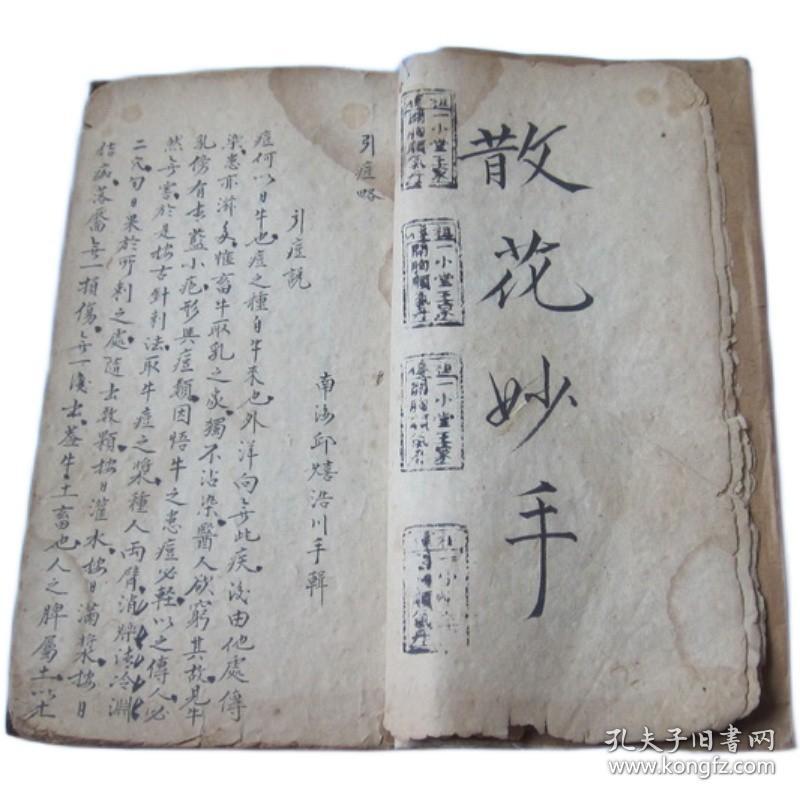 散花妙手
一小堂王家
開胸順氣丹
引痘略
引痘說
南海邱熺浩川手輯
痘何以曰牛也痘之種自牛來也外洋向無此疾後由他處傳
染患亦滋多惟畜牛取乳之家獨不沾染醫人欲窮其故見牛
乳傍有青藍小疱形與痘類因悟牛之患痘必輕以之傳人必
然無害於是按古針刺法取牛痘之漿種人兩臂消爍清冷淵
二穴旬日果於所刺之處隨出數顆按日灌水按日滿漿按日
結痂落靨無一損傷無一復出蓋牛土畜也人之脾屬土以土
孔夫子旧書网
www.kongfz.com